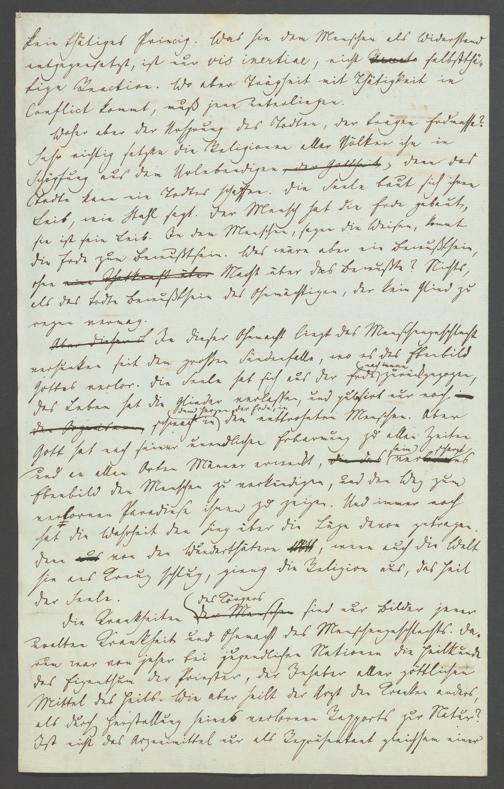 kein thätiges Princip. Was sie dem Menschen als Widerstand
entgegensetzt, ist nur vis inertiae, nicht selbstthä-
tige Reaction. Wo aber Trägheit mit Thätigkeit in
Conflict kommt, muß jene unterliegen.
Woher aber der Ursprung des Todten, der trägen Erdmasse?
Sehr richtig setzten die Religionen aller Völker ihn in
Schöpfung aus dem Urlebendigen der Gottheit; denn das
Todte kann nie Todtes schaffen. Die Seele baut sich ihren
Leib, wie Stahl sagt. Der Mensch hat die Erde gebaut,
sie ist sein Leib. In dem Menschen, sagen die Weisen, kommt
die Erde zum Bewußtsein. Was wäre aber ein Bewußtsein,
ohne Macht über das Bewußte? Nichts,
als das todte Bewußtsein des Ohnmächtigen, der kein Glied zu
regen vermag.
Aber dieser In dieser Ohnmacht liegt das Menschengeschlecht
versunken seit dem großen Sündenfalle, wo es das Ebenbild
Gottes verlor. Die Seele hat sich aus der Erde zurückgezogen,
das Leben hat die Glieder verlassen, und nur noch
in den Menschen. Aber
Gott hat nach seiner unendlichen Erbarmung zu allen Zeiten
und an allen Orten Männer erweckt,
Ebenbild den Menschen zu verkündigen, und den Weg zum
verlornen Paradiese ihnen zu zeigen. Und immer noch
hat die Wahrheit den Sieg über die Lüge davon getragen.
denn aus von den Wunderthätern, wenn auch die Welt
sie ans Kreuz schlug, gieng die Religion aus, das Heil
der Seele.
des Körpers
Die Krankheiten der Menschen sind nur Bilder jener
uralten Krankheit und Ohnmacht des Menschengeschlechts. Da-
rum war von jeher bei jugendlichen Nationen die Heilkunde
das Eigenthum der Priester, der Inhaber aller göttlichen
Mittel des Heils. Wie aber heilt der Arzt den Kranken anders,
als durch Herstellung seines verlornen Rapports zur Natur?
Ist nicht das Arzneimittel nur als Repräsentant gleichsam einer